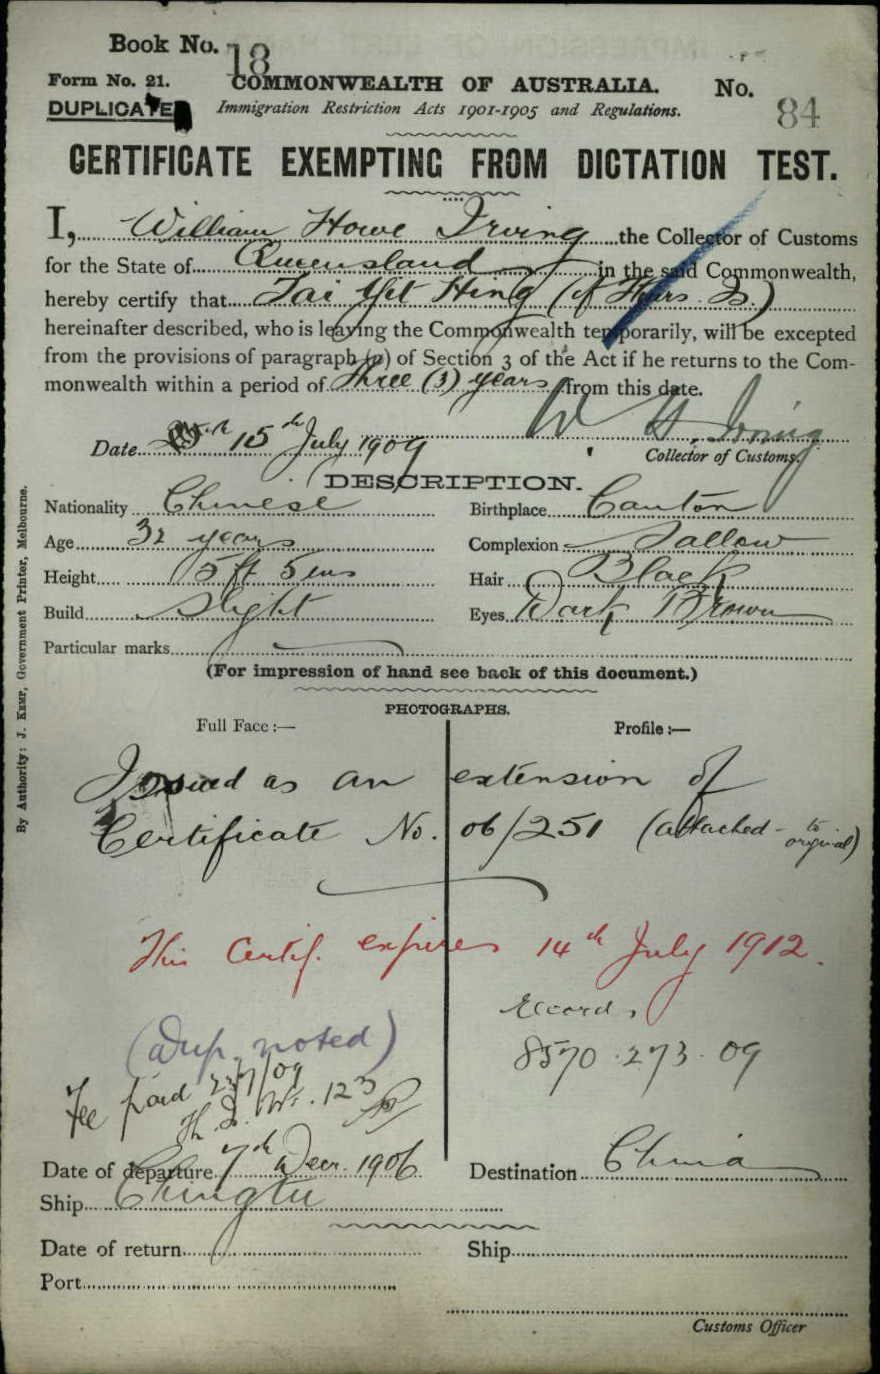 Book No. 18
Form No. 21. COMMONWEALTH OF AUSTRALIA. No. 84
DUPLICATE Immigration Restriction Acts 1901-1905 and Regulations.
CERTIFICATE EXEMPTING FROM DICTATION TEST.
I, William Howe Irving the Collector of Customs
for the State of Queensland in the said Commonwealth,
hereby certify that Tai Yet Hing (of Thurs. Is.)
hereinafter described, who is leaving the Commonwealth temporarily, will be excepted
from the provisions of paragraph (a) of Section 3 of the Act if he returns to the Com-
monwealth within a period of three (3) years from this date.
W H Irving
Date 15th July 1909
Collector of Customs.
DESCRIPTION.
Nationality Chinese Birthplace Canton
Age 32 years Complexion Sallow
Height 5 ft 5 ins Hair Black
Build Slight Eyes Dark Brown
Particular marks
(For impression of hand see back of this document.)
PHOTOGRAPHS.
Full Face:— Profile:—
Issued as an extension of
Certificate No. 06/251 (attached to original)
This Certif. expires 14th July 1912.
Record,
(Dup. noted) 8570.273.09
Fee paid
123
Date of departure 7th Decr. 1906 Destination China
Ship Chingtu
Date of return Ship
Port
Customs Officer
By Authority: J. KEMP, Government Printer, Melbourne.